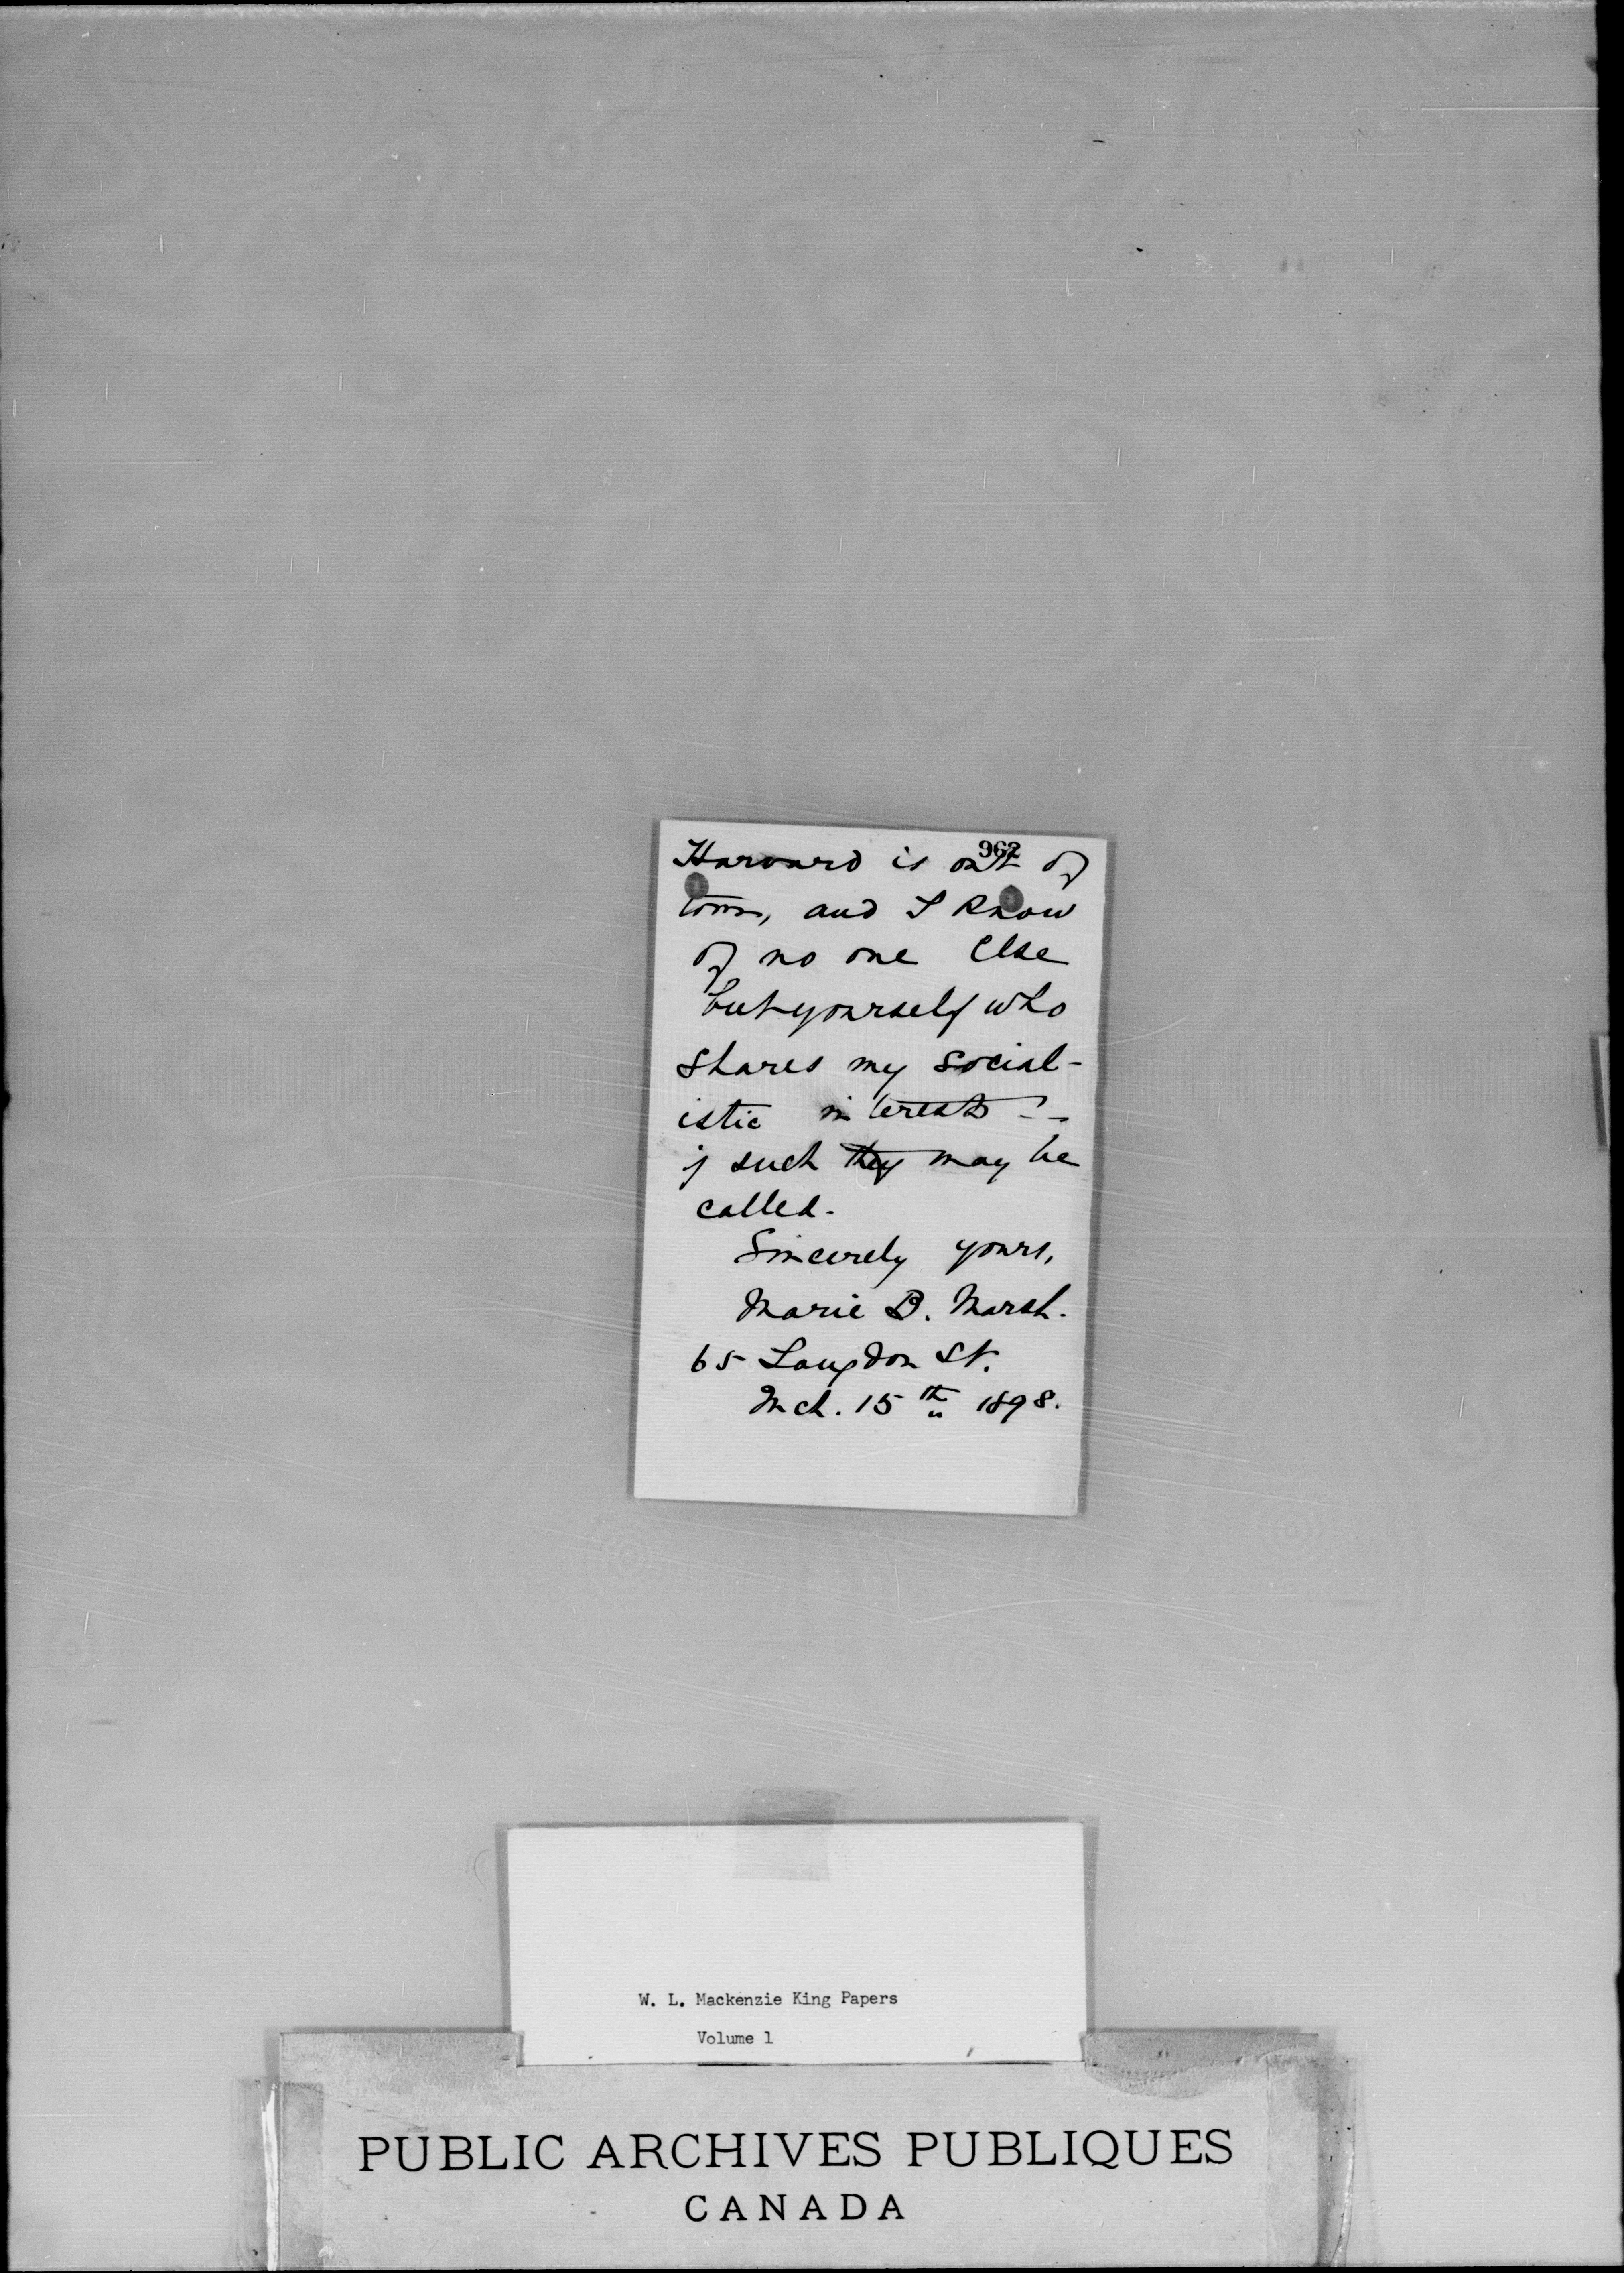 962
Harvard is out of
town, and I know
of no one else
but yourself who
shares my social-
istic interests - -
if such they may be
called.
Sincerely yours,
Marie B. Marsh.
65 Langdon St.
Mch. 15th 1898.
W. L. Mackenzie King Papers
Volume 1
PUBLIC ARCHIVES PUBLIQUES
CANADA